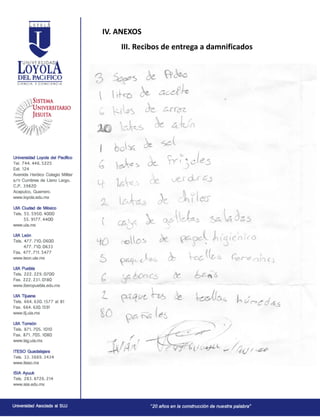 UNIVERSIDAD
LOYOLA
DEL PACÍFICO
SISTEMA
UNIVERSITARIO
JESUITA
Universidad Loyola del Pacífico
Tel. 744. 446. 5225
Ext. 124
Avenida Heroico Colegio Militar
s/n Cumbres de Llano Largo,
C.P. 39820
Acapulco, Guerrero.
www.loyola.edu.mx
UIA Ciudad de México
Tels. 55. 5950. 4000
55. 9177. 4400
www.uia.mx
UIA León
Tels. 477. 710. 0600
477. 710. 0633
Fax. 477. 711. 5477
www.leon.uia.mx
UIA Puebla
Tels. 222. 229. 0700
Fax. 222. 231. 0180
www.iberopuebla.edu.mx
UIA Tijuana
Tels. 664. 630. 1577 al 81
Fax. 664. 630. 1591
www.tij.uia.mx
UIA Torreón
Tels. 871. 705. 1010
Fax. 871. 705. 1080
www.lag.uia.mx
ITESO Guadalajara
Tels. 33. 3669. 3434
www.iteso.mx
ISIA Ayuuk
Tels. 283. 8726. 214
www.isia.edu.mx
IV. ANEXOS
III. Recibos de entrega a damnificados
3 Sopas de Fideo
1 litro de aceite
6 kilos de arroz
10 latas de atún
1 bolsa de sal
6 latas de frijoles
4 latas de verduras
2 latas de chiles
1 caja de galletas saladas
40 rollos de papel higiénico
5 paquetes de toallas femeninas
6 jabones de baño
2 paquetes de toallas húmedas
80 pañales
Universidad Asociada al SUJ
"20 años en la construcción de nuestra palabra"